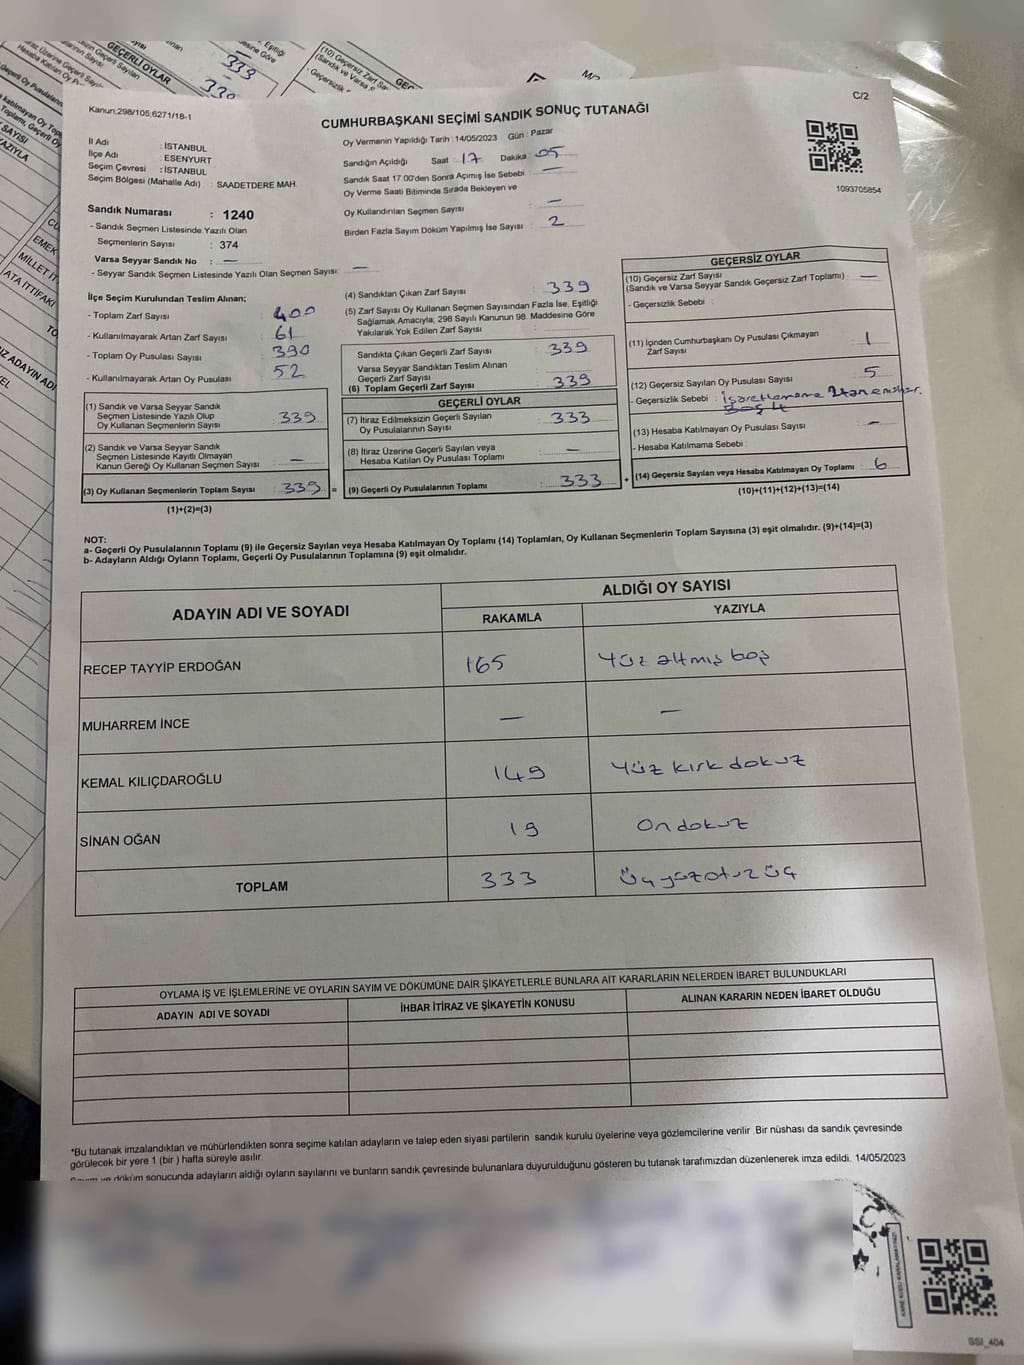 C/2
Kanun;298/105;6271/18-1
CUMHURBAŞKANI SEÇİMİ SANDIK SONUÇ TUTANAĞI
1093705854
İl Adı : İSTANBUL
İlçe Adı : ESENYURT
Seçim Çevresi : İSTANBUL
Seçim Bölgesi (Mahalle Adı) : SAADETDERE MAH.
Oy Vermenin Yapıldığı Tarih : 14/05/2023 Gün : Pazar
Sandığın Açıldığı Saat : 17 Dakika : 05
Sandık Saat 17:00'den Sonra Açımış İse Sebebi : —
Oy Verme Saati Bitiminde Sırada Bekleyen ve
Oy Kullandırılan Seçmen Sayısı : —
Birden Fazla Sayım Döküm Yapılmış İse Sayısı : 2
Sandık Numarası : 1240
- Sandık Seçmen Listesinde Yazılı Olan
Seçmenlerin Sayısı : 374
Varsa Seyyar Sandık No : —
- Seyyar Sandık Seçmen Listesinde Yazılı Olan Seçmen Sayısı: —
İlçe Seçim Kurulundan Teslim Alınan;
- Toplam Zarf Sayısı : 400
- Kullanılmayarak Artan Zarf Sayısı : 61
- Toplam Oy Pusulası Sayısı : 390
- Kullanılmayarak Artan Oy Pusulası : 52
(1) Sandık ve Varsa Seyyar Sandık
Seçmen Listesinde Yazılı Olup
Oy Kullanan Seçmenlerin Sayısı : 339
(2) Sandık ve Varsa Seyyar Sandık
Seçmen Listesinde Kayıtlı Olmayan
Kanun Gereği Oy Kullanan Seçmen Sayısı : —
(3) Oy Kullanan Seçmenlerin Toplam Sayısı : 339 =
(1)+(2)=(3)
(4) Sandıktan Çıkan Zarf Sayısı : 339
(5) Zarf Sayısı Oy Kullanan Seçmen Sayısından Fazla İse, Eşitliği
Sağlamak Amacıyla; 298 Sayılı Kanunun 98. Maddesine Göre
Yakılarak Yok Edilen Zarf Sayısı :
Sandıkta Çıkan Geçerli Zarf Sayısı : 339
Varsa Seyyar Sandıktan Teslim Alınan
Geçerli Zarf Sayısı :
(6) Toplam Geçerli Zarf Sayısı : 339
GEÇERLİ OYLAR
(7) İtiraz Edilmeksizin Geçerli Sayılan
Oy Pusulalarının Sayısı : 333
(8) İtiraz Üzerine Geçerli Sayılan veya
Hesaba Katılan Oy Pusulası Toplamı : —
(9) Geçerli Oy Pusulalarının Toplamı : 333 +
GEÇERSİZ OYLAR
(10) Geçersiz Zarf Sayısı
(Sandık ve Varsa Seyyar Sandık Geçersiz Zarf Toplamı) : —
- Geçersizlik Sebebi :
(11) İçinden Cumhurbaşkanı Oy Pusulası Çıkmayan
Zarf Sayısı : 1
(12) Geçersiz Sayılan Oy Pusulası Sayısı : 5
- Geçersizlik Sebebi :
(13) Hesaba Katılmayan Oy Pusulası Sayısı : —
- Hesaba Katılmama Sebebi :
(14) Geçersiz Sayılan veya Hesaba Katılmayan Oy Toplamı : 6
(10)+(11)+(12)+(13)=(14)
NOT:
a- Geçerli Oy Pusulalarının Toplamı (9) ile Geçersiz Sayılan veya Hesaba Katılmayan Oy Toplamı (14) Toplamları, Oy Kullanan Seçmenlerin Toplam Sayısına (3) eşit olmalıdır. (9)+(14)=(3)
b- Adayların Aldığı Oyların Toplamı, Geçerli Oy Pusulalarının Toplamına (9) eşit olmalıdır.
ADAYIN ADI VE SOYADI
ALDIĞI OY SAYISI
RAKAMLA YAZIYLA
RECEP TAYYİP ERDOĞAN 165 Yüz altmış beş
MUHARREM İNCE — —
KEMAL KILIÇDAROĞLU 149 Yüz kırk dokuz
SİNAN OĞAN 19 On dokuz
TOPLAM 333 Üç yüz otuz üç
OYLAMA İŞ VE İŞLEMLERİNE VE OYLARIN SAYIM VE DÖKÜMÜNE DAİR ŞİKAYETLERLE BUNLARA AİT KARARLARIN NELERDEN İBARET BULUNDUKLARI
ADAYIN ADI VE SOYADI İHBAR İTİRAZ VE ŞİKAYETİN KONUSU ALINAN KARARIN NEDEN İBARET OLDUĞU
*Bu tutanak imzalandıktan ve mühürlendikten sonra seçime katılan adayların ve talep eden siyasi partilerin sandık kurulu üyelerine veya gözlemcilerine verilir .Bir nüshası da sandık çevresinde
görülecek bir yere 1 (bir ) hafta süreyle asılır.
Sayım ve döküm sonucunda adayların aldığı oyların sayılarını ve bunların sandık çevresinde bulunanlara duyurulduğunu gösteren bu tutanak tarafımızdan düzenlenerek imza edildi. 14/05/2023
KARE KODU KARALAMAYINIZ!
SSI_404